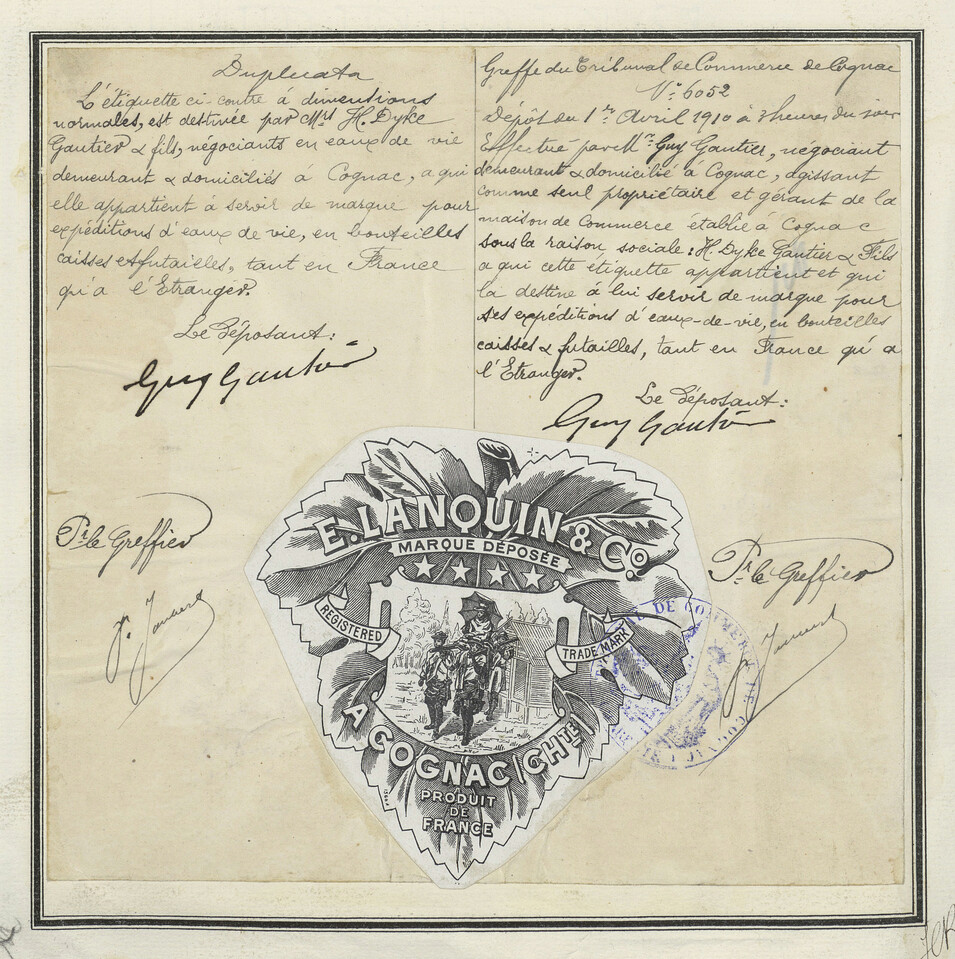 Duplicata
L'étiquette ci-contre à dimensions
normales, est destinée par Mrs H. Dyke
Gautier & fils, négociants en eaux de vie
demeurant & domiciliés à Cognac, a qui
elle appartient à servir de marque pour
expéditions d'eaux de vie, en bouteilles
caisses & futailles, tant en France
qu'a l'Etranger.
Le Déposant:
Guy Gautier
Pr. le Greffier
Greffe du Tribunal de Commerce de Cognac
No. 6052
Dépôt du 1er Avril 1910 à 3 heures du soir
Effectué par Mr. Guy Gautier, négociant
demeurant & domicilié à Cognac, agissant
comme seul propriétaire et gérant de la
maison de Commerce établie à Cognac
sous la raison sociale: H. Dyke Gautier & Fils
a qui cette étiquette appartient et qui
la destine à lui servir de marque pour
ses expéditions d'eaux-de-vie, en bouteilles
caisses & futailles, tant en France qu'a
l'Etranger.
Le Déposant:
Guy Gautier
Pr. le Greffier
E. LANQUIN & Co.
MARQUE DÉPOSÉE
REGISTERED
TRADE MARK
A COGNAC (CHTE)
PRODUIT
DE
FRANCE
DE COMMERCE DE COGNAC